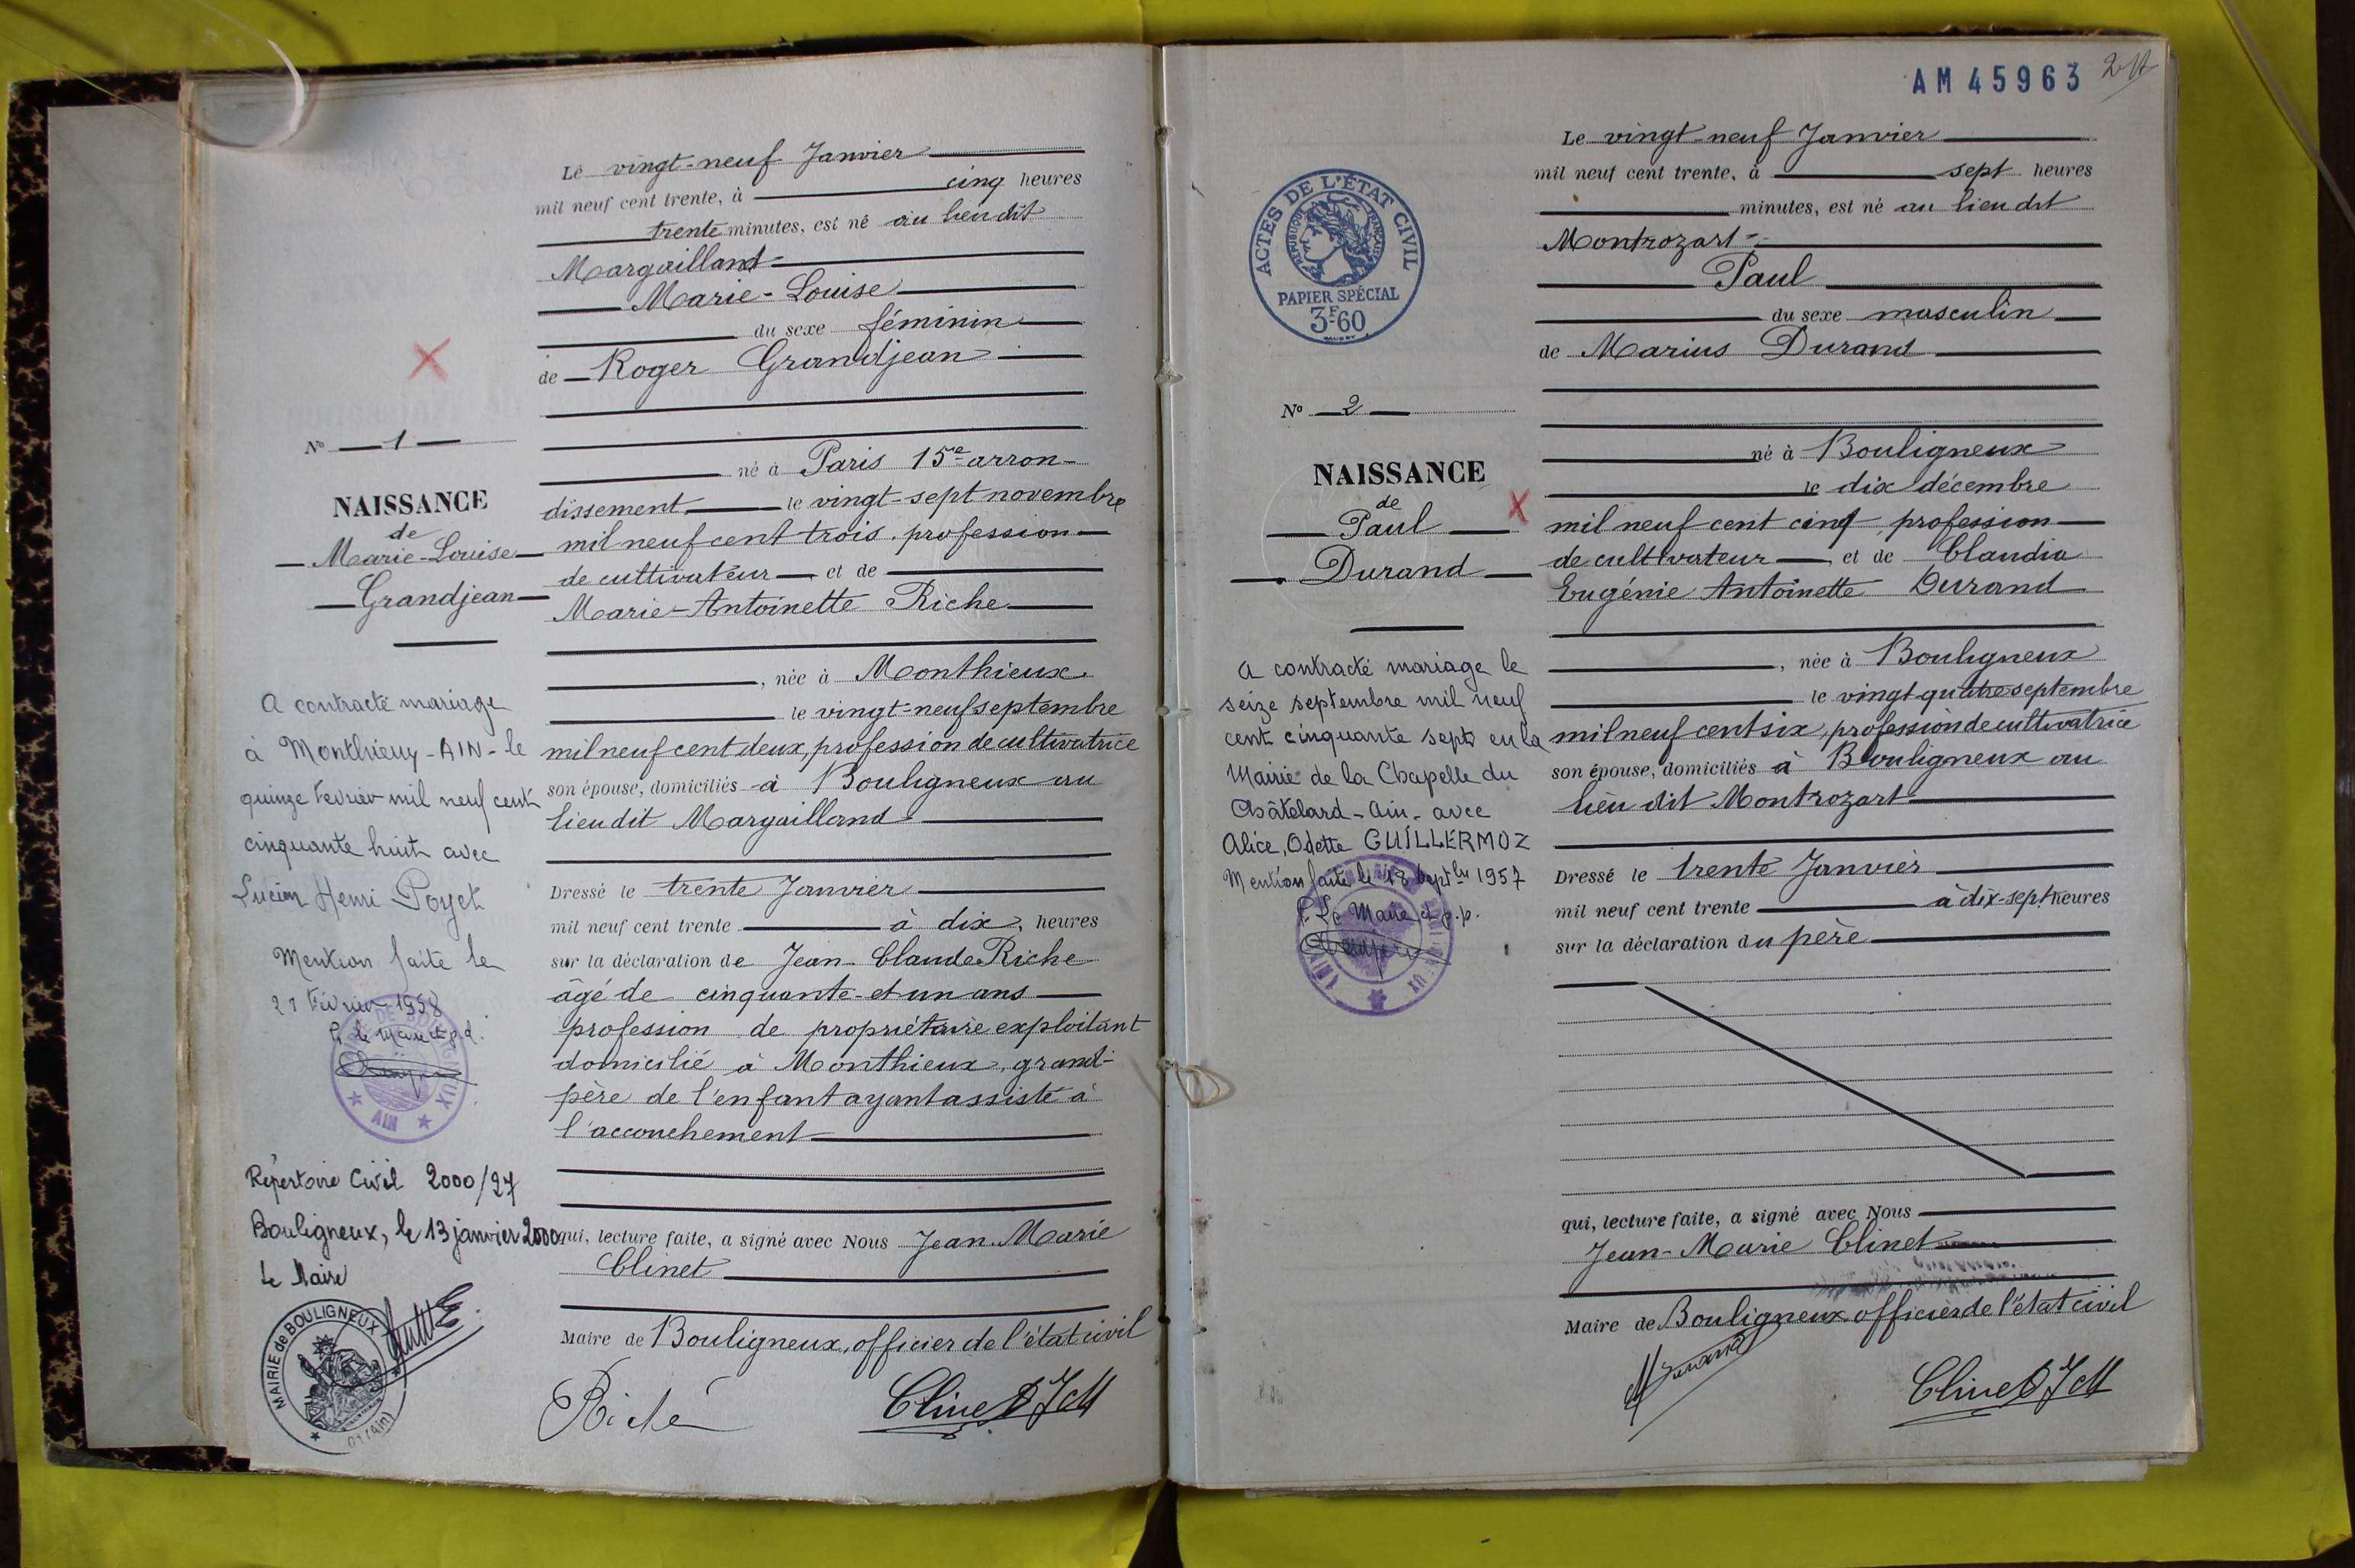 Le vingt-neuf Janvier
mil neuf cent trente, à cinq heures
trente minutes, est né au lieu dit
Margailland
Marie-Louise
du sexe féminin
de Roger Grandjean
né à Paris 15e arron-
dissement le vingt-sept novembre
mil neuf cent trois, profession
de cultivateur et de
Marie-Antoinette Riche
, née à Monthieux
le vingt-neuf septembre
mil neuf cent deux, profession de cultivatrice
son épouse, domiciliés à Bouligneux au
lieu dit Margailland
Dressé le trente Janvier
mil neuf cent trente à dix heures
sur la déclaration de Jean-Claude Riche
âgé de cinquante-et-un ans
profession de propriétaire exploitant
domicilié à Monthieux, grand-
père de l'enfant ayant assisté à
l'accouchement
qui, lecture faite, a signé avec Nous Jean-Marie
Clinet
Maire de Bouligneux, officier de l'état civil
Riche
Clinet J M
No 1
NAISSANCE
de
Marie-Louise
Grandjean
A contracté mariage
à Monthieux-AIN-le
quinze Février mil neuf cent
cinquante huit avec
Lucien Henri Poyet
Mention faite le
21 Février 1958
P. le Maire et p.d.
AIN
Répertoire Civil 2000/27
Bouligneux, le 13 janvier 2000
Le Maire
MAIRIE de BOULIGNEUX
01 (Ain)
AM 45963
Le vingt-neuf Janvier
mil neuf cent trente, à sept heures
minutes, est né au lieu dit
Montrozart
Paul
du sexe masculin
de Marius Durand
né à Bouligneux
le dix décembre
mil neuf cent cinq, profession
de cultivateur et de Claudia
Eugénie Antoinette Durand
, née à Bouligneux
le vingt quatre septembre
mil neuf cent six, profession de cultivatrice
son épouse, domiciliés à Bouligneux au
lieu dit Montrozart
Dressé le trente Janvier
mil neuf cent trente à dix-sept heures
sur la déclaration du père
qui, lecture faite, a signé avec Nous
Jean-Marie Clinet
Maire de Bouligneux officier de l'état civil
M Durand
Clinet J M
ACTES DE L'ÉTAT CIVIL
RÉPUBLIQUE FRANÇAISE
PAPIER SPÉCIAL
3F60
No 2
NAISSANCE
de
Paul
Durand
A contracté mariage le
seize septembre mil neuf
cent cinquante sept en la
Mairie de la Chapelle du
Châtelard-Ain-avec
Alice, Odette GUILLERMOZ
Mention faite le 18 Septbre 1957
P. Le Maire et p.p.